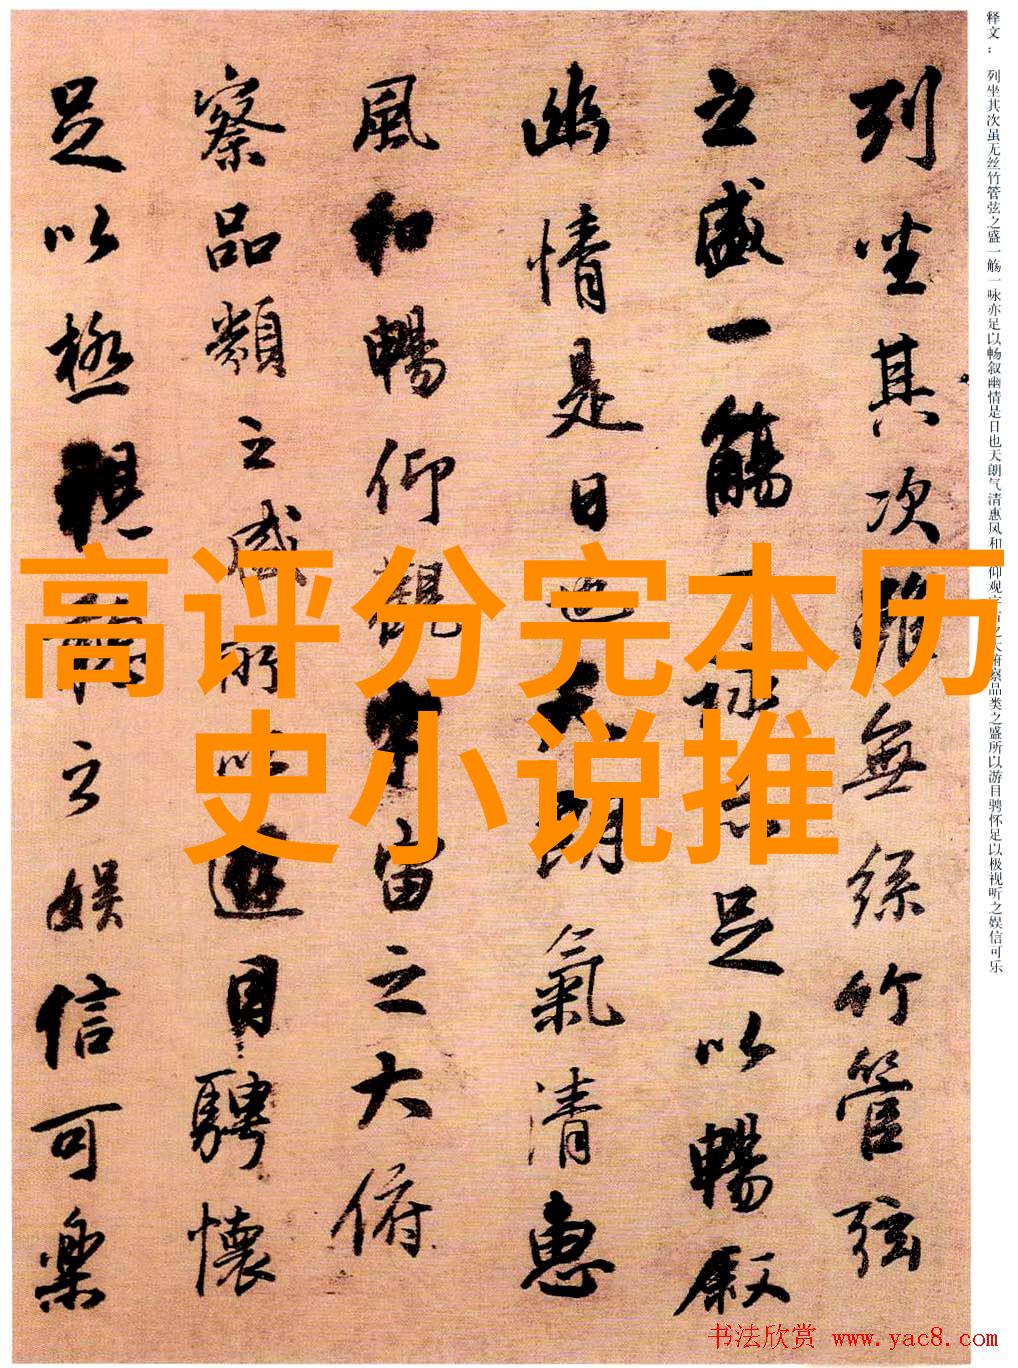 高评分完本历
史小说推
释文： 列坐其次虽无丝竹管弦之盛一觞一咏亦足以畅叙幽情是日也天朗气清惠风和仰观宇宙之大俯察品类之盛所以游目骋怀足以极视听之娱信可乐
列坐其次雖無絲竹管弦
之盛一觴一詠亦足以暢叙
幽情是日也天朗氣清惠
風和暢仰觀宇宙之大俯
察品類之盛所以遊目騁懷
足以極視聽之娛信可樂
书法欣赏 www.yac8.com